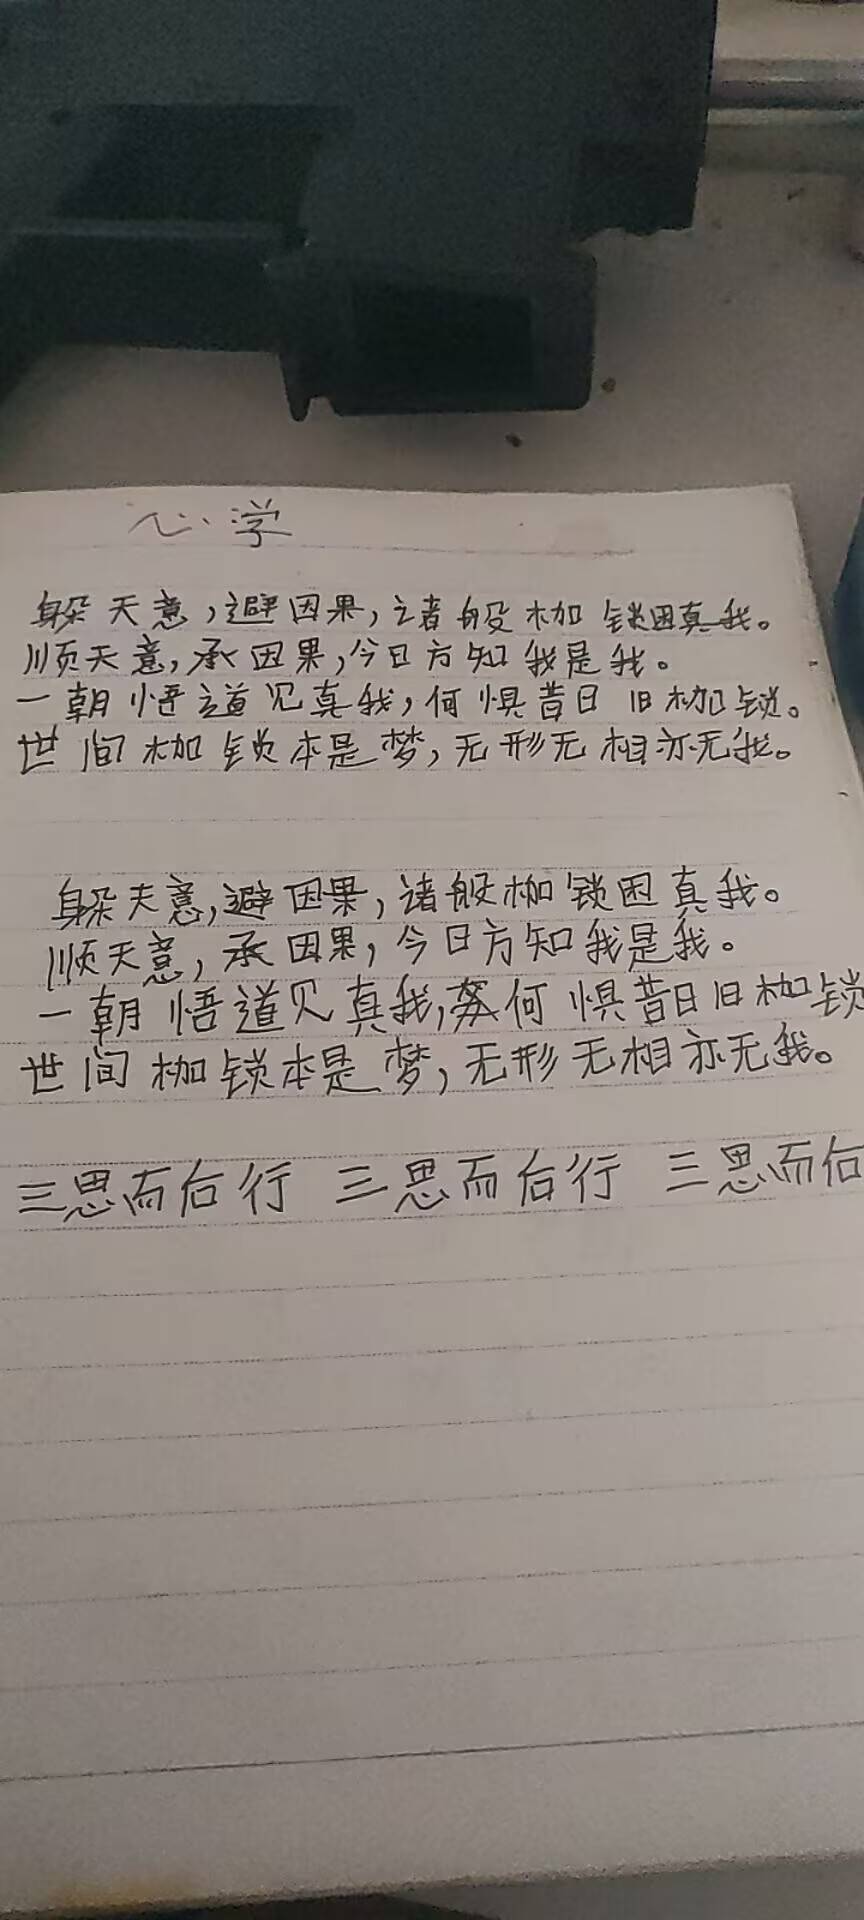 心学
躲天意,避因果,诸般枷锁困真我。
顺天意,承因果,今日方知我是我。
一朝悟道见真我,何惧昔日旧枷锁。
世间枷锁本是梦,无形无相亦无我。
躲天意,避因果,诸般枷锁困真我。
顺天意,承因果,今日方知我是我。
一朝悟道见真我,何惧昔日旧枷锁
世间枷锁本是梦,无形无相亦无我。
三思而后行 三思而后行 三思而后